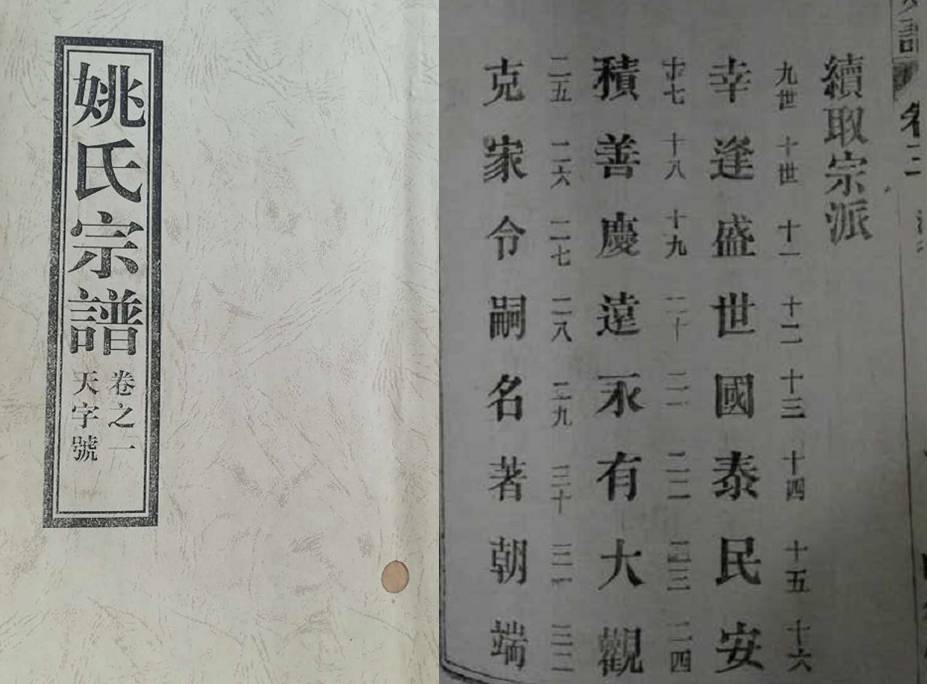 姚氏宗譜
卷之一
天字號
續取宗派
九世 十世 十一 十二 十三 十四 十五 十六
幸逢盛世國泰民安
十七 十八 十九 二十 二一 二二 二三 二四
積善慶遠永有大觀
二五 二六 二七 二八 二九 三十 三一 三二
克家令嗣名著朝端